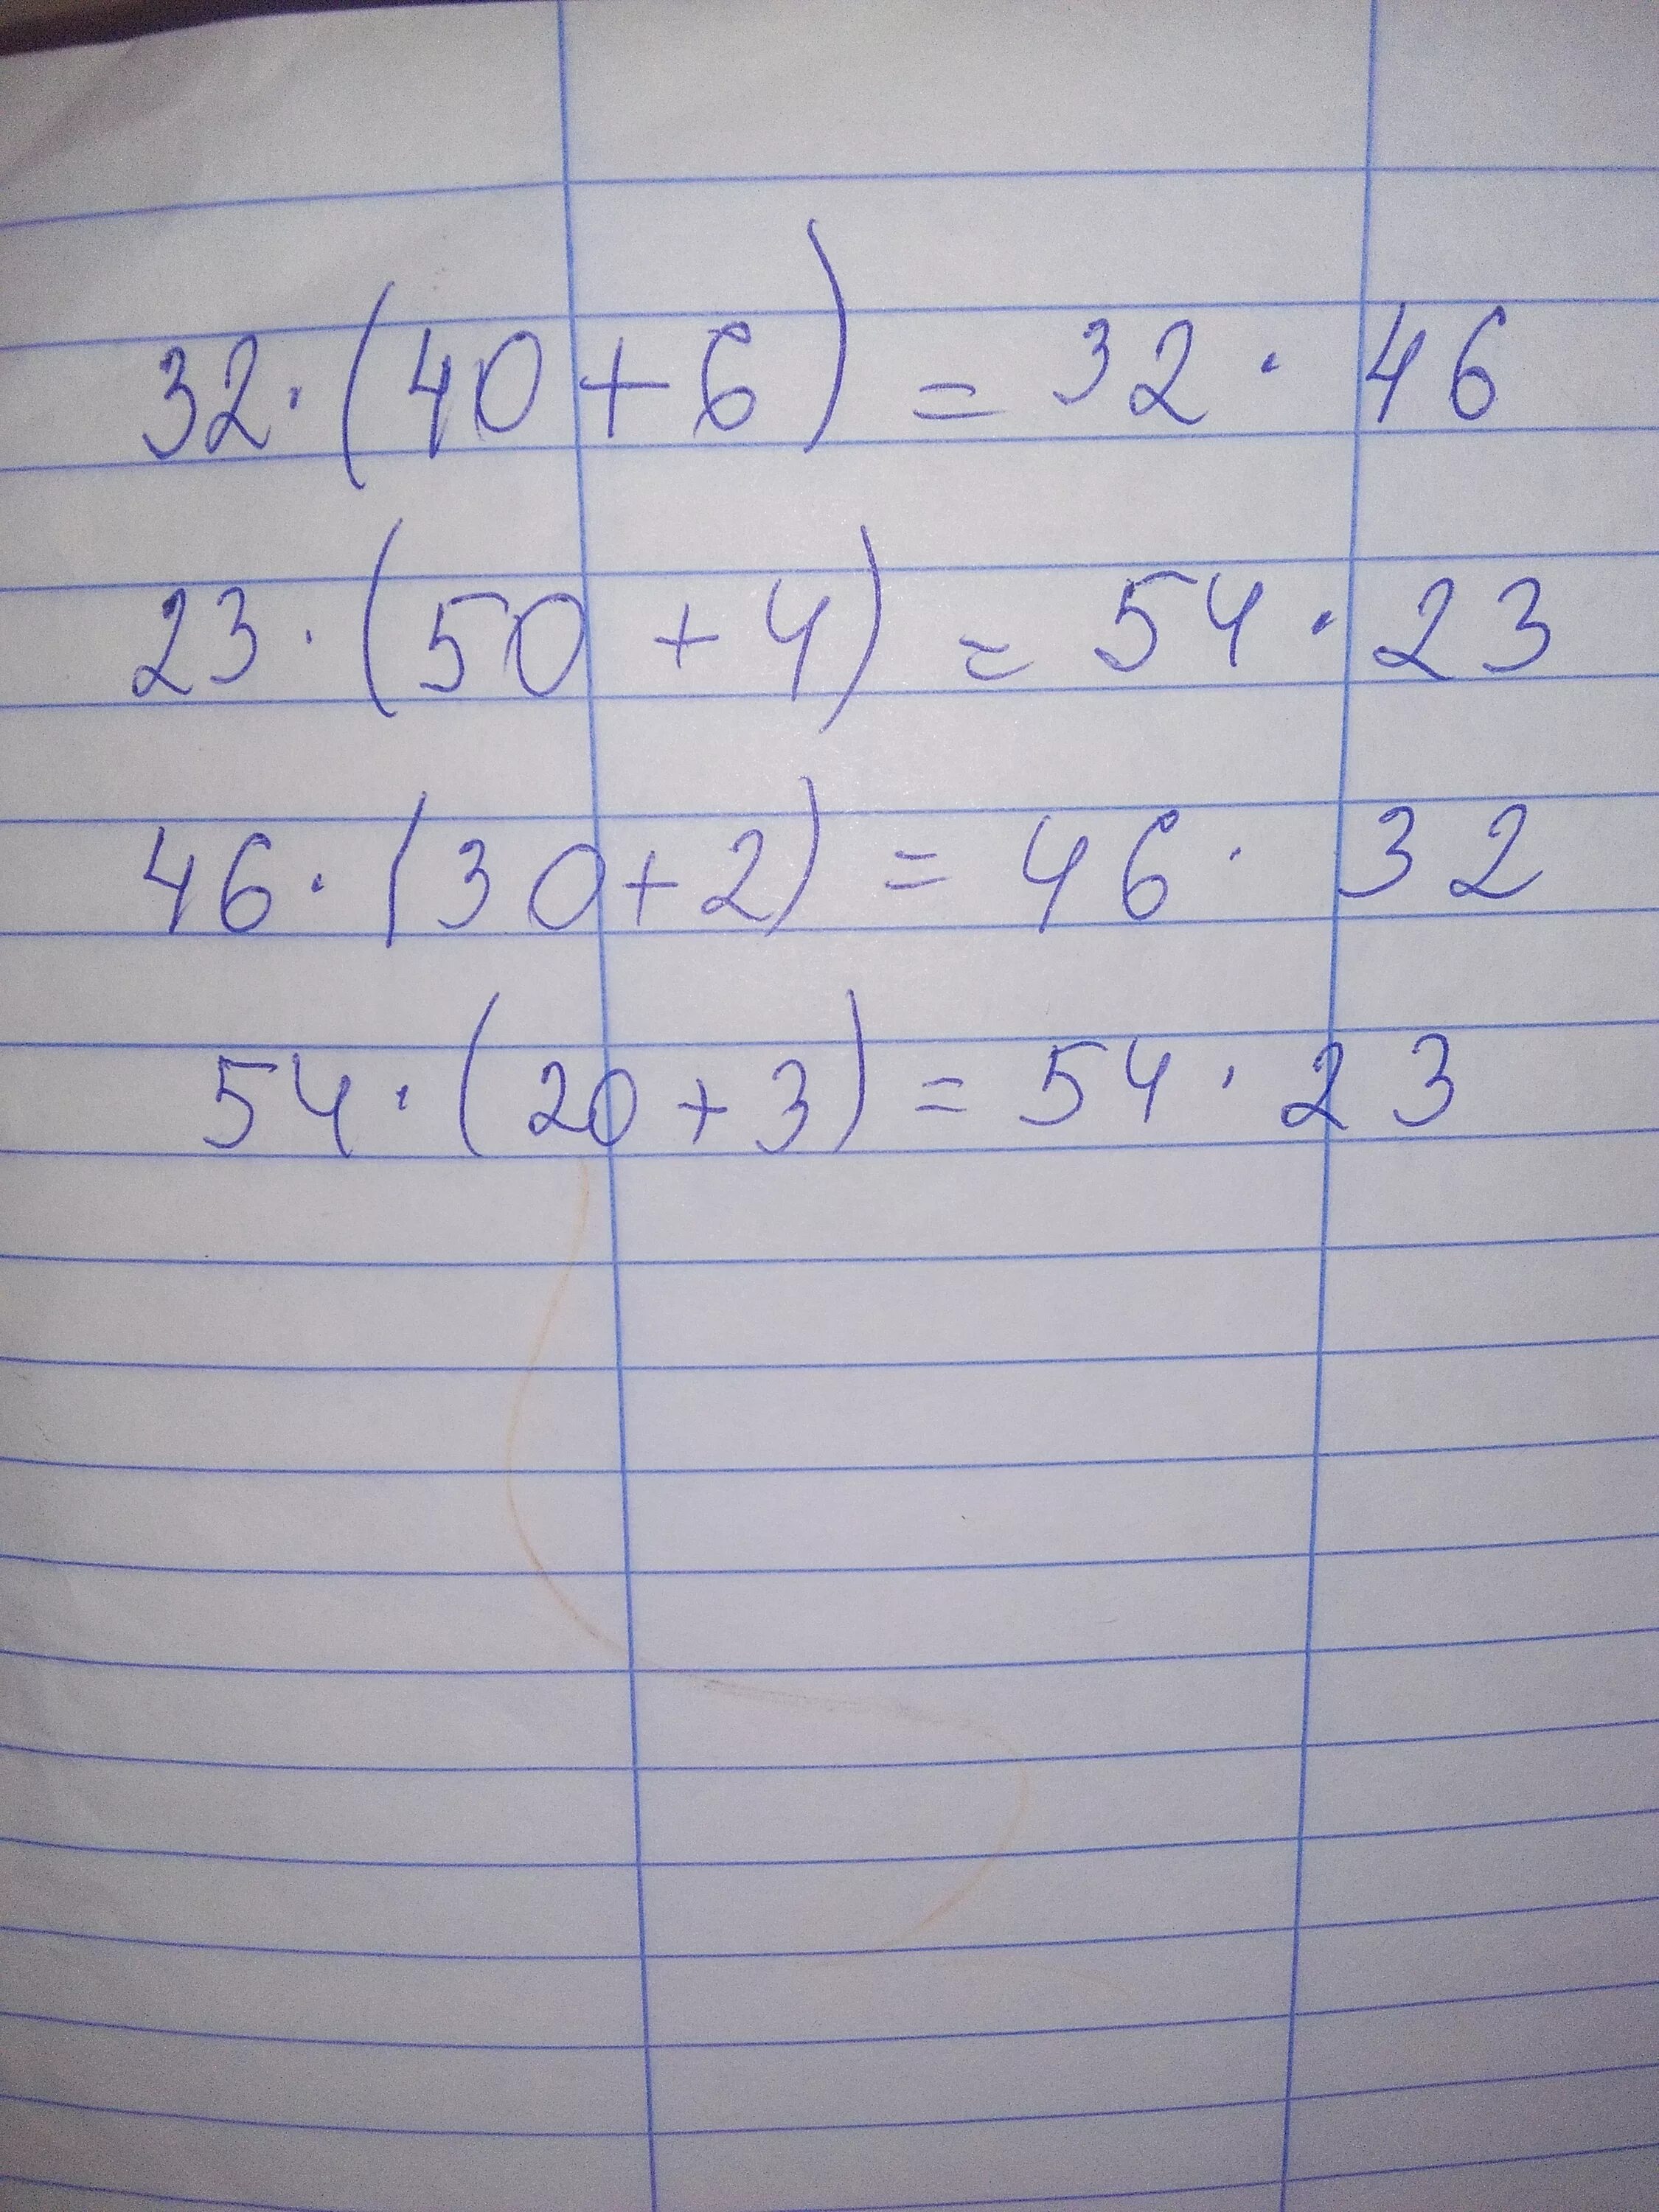 32·(40+6) = 32 · 46
23·(50+4) = 54 · 23
46·(30+2) = 46 · 32
54·(20+3) = 54 · 23